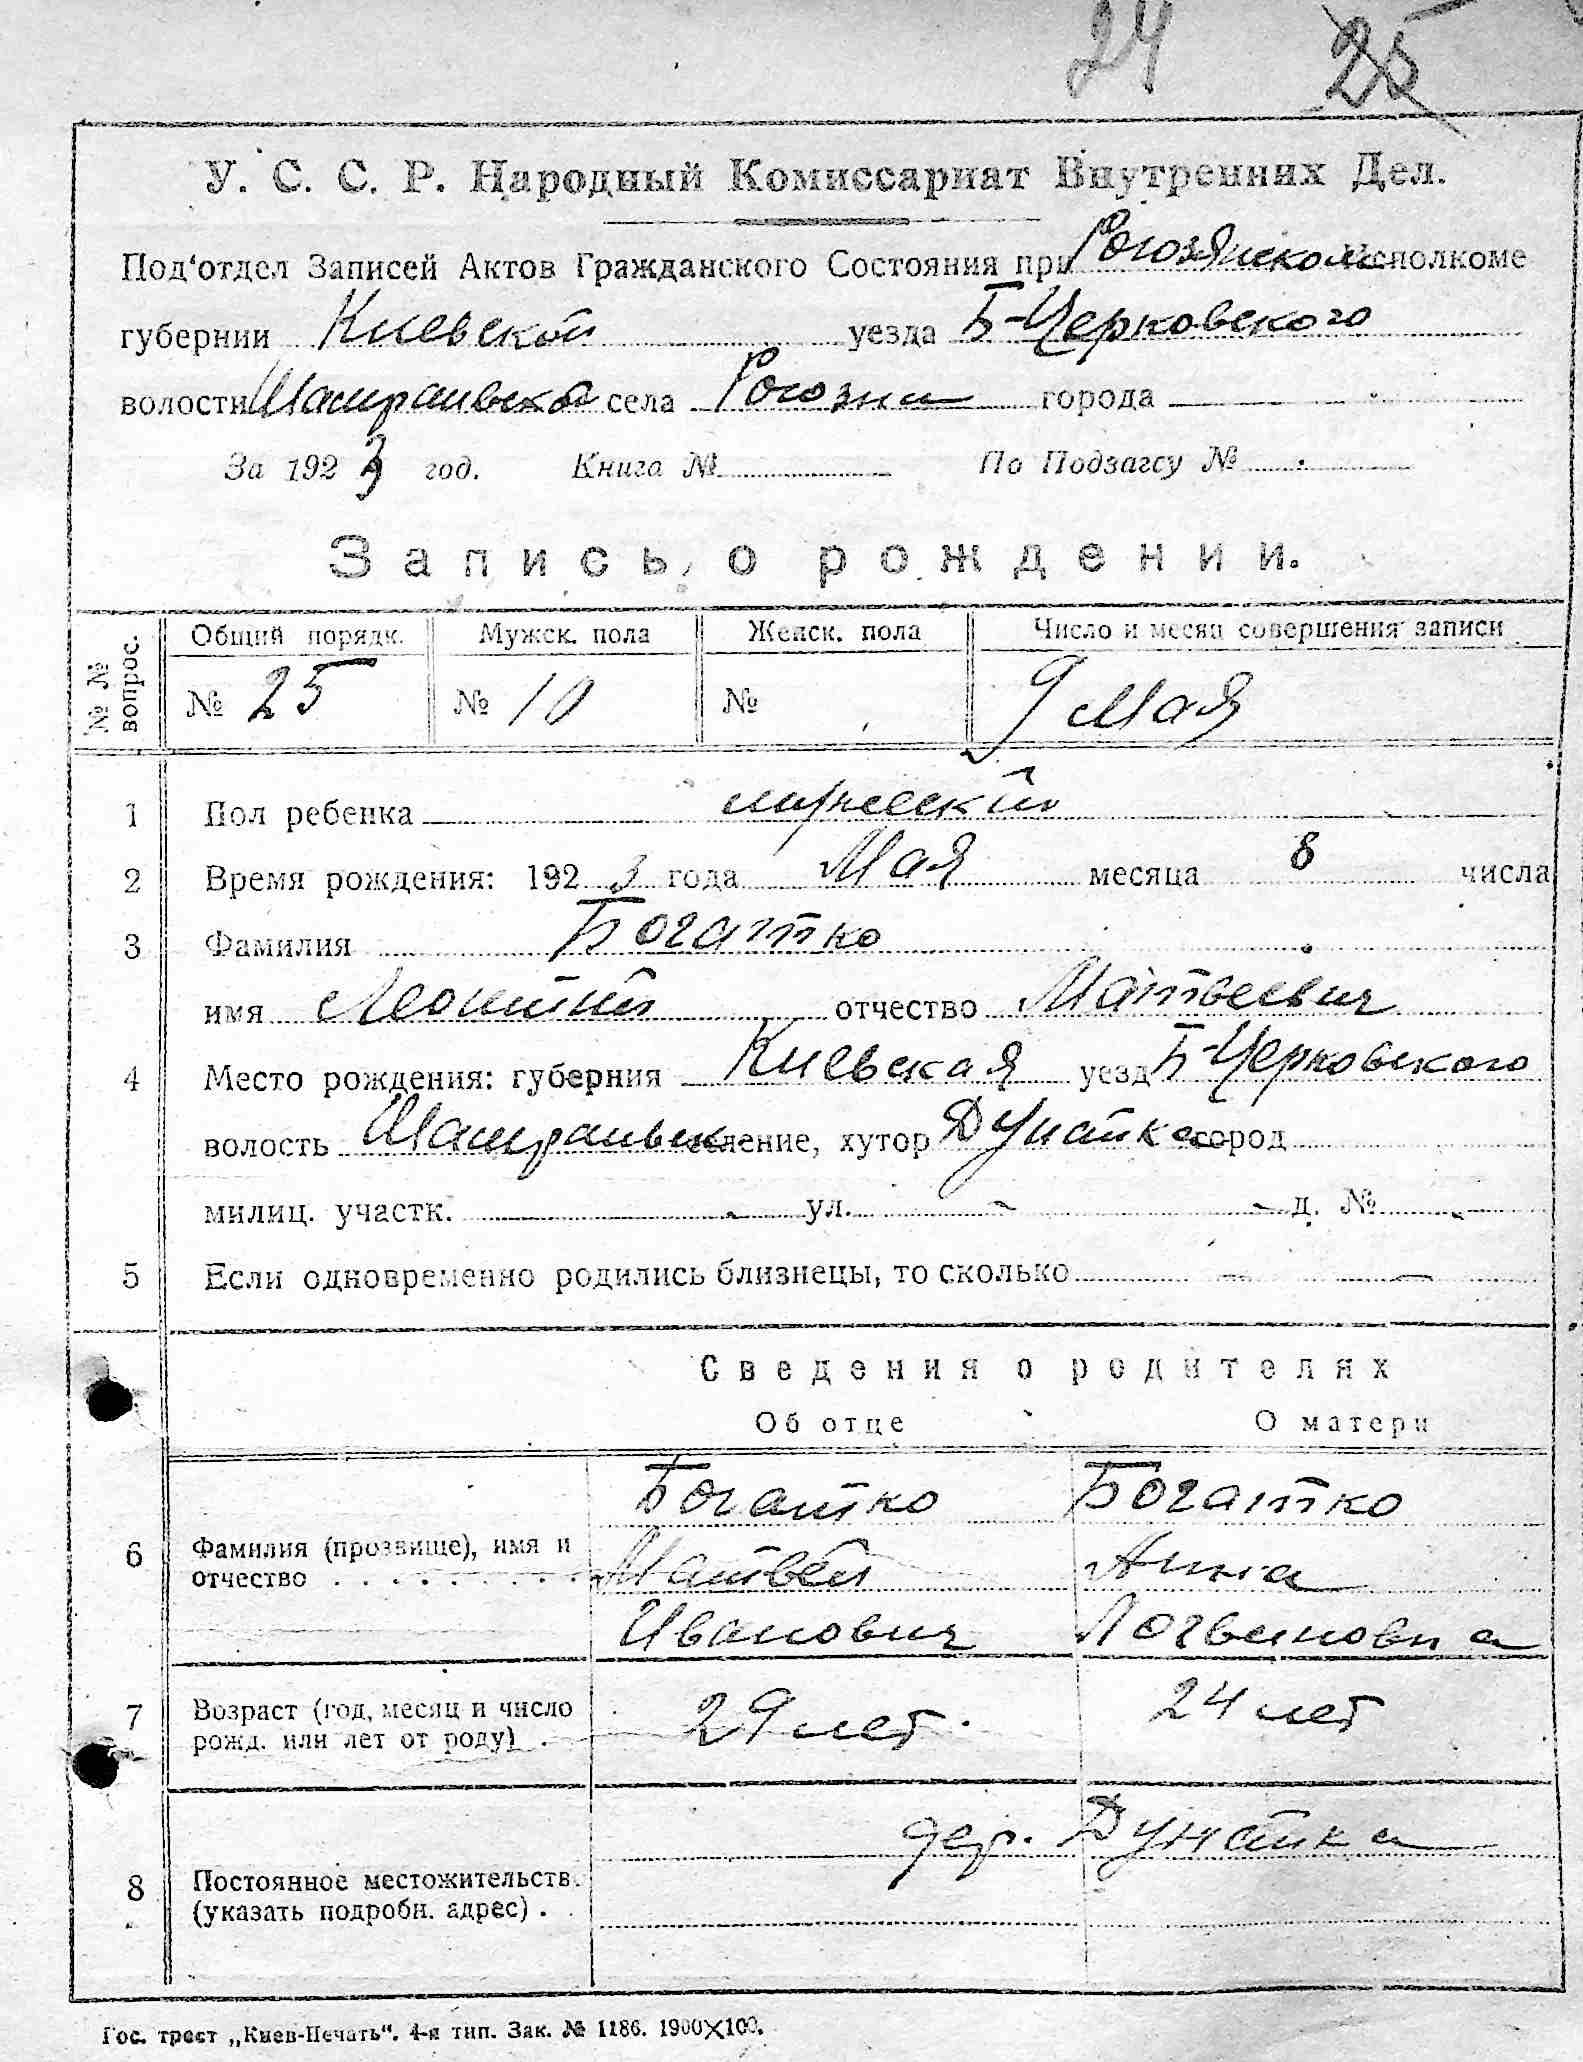 24 25
У. С. С. Р. Народный Комиссариат Внутренних Дел.
Под'отдел Записей Актов Гражданского Состояния при Рогозянском Исполкоме
губернии Киевской уезда Б-Церковского
волости села Рогозни города
За 1923 год. Книга № По Подзагсу №
Запись о рождении.
№ № вопрос. Общий порядк. Мужск. пола Женск. пола Число и месяц совершения записи
№ 25 № 10 № 9 Мая
1 Пол ребенка мужеский
2 Время рождения: 1923 года Мая месяца 8 числа
3 Фамилия Богатко
имя Леонтий отчество Матвеевич
4 Место рождения: губерния Киевская уезд Б-Церковского
волость селение, хутор Дунайка город
милиц. участк. - ул. - д. № -
5 Если одновременно родились близнецы, то сколько - -
Сведения о родителях
Об отце О матери
Богатко Богатко
6 Фамилия (прозвище), имя и отчество Матвей Анна
Иванович Логвиновна
7 Возраст (год, месяц и число рожд. или лет от роду) 29 лет. 24 лет
дер. Дунайка
8 Постоянное местожительств. (указать подробн. адрес)
Гос. трест „Киев-Печать“. 4-я тип. Зак. № 1186. 1900×100.